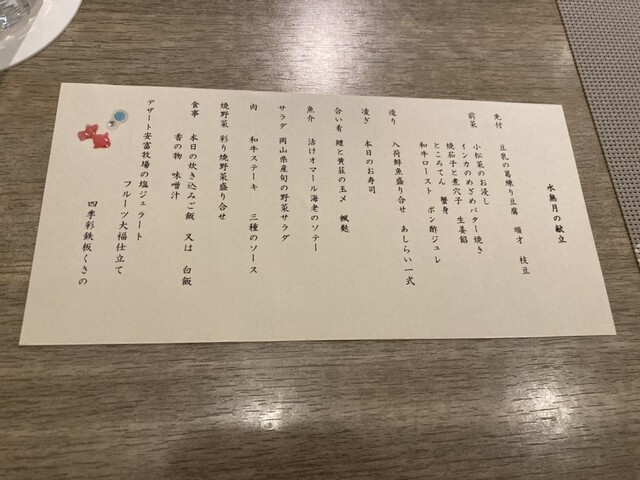 水無月の献立
先付　豆乳の葛練り豆腐　順才　枝豆
前菜　小松菜のお浸し
インカのめざめバター焼き
焼茄子と煮穴子　生姜餡
ところてん　蟹身
和牛ロースト　ポン酢ジュレ
造り　入荷鮮魚盛り合せ　あしらい一式
凌ぎ　本日のお寿司
合い肴　鱧と黄韮の玉〆　楓麩
魚介　活けオマール海老のソテー
サラダ　岡山県産旬の野菜サラダ
肉　和牛ステーキ　三種のソース
焼野菜　彩り焼野菜盛り合せ
食事　本日の炊き込みご飯　又は　白飯
香の物　味噌汁
デザート　安富牧場の塩ジェラート
フルーツ大福仕立て
四季彩鉄板くさの